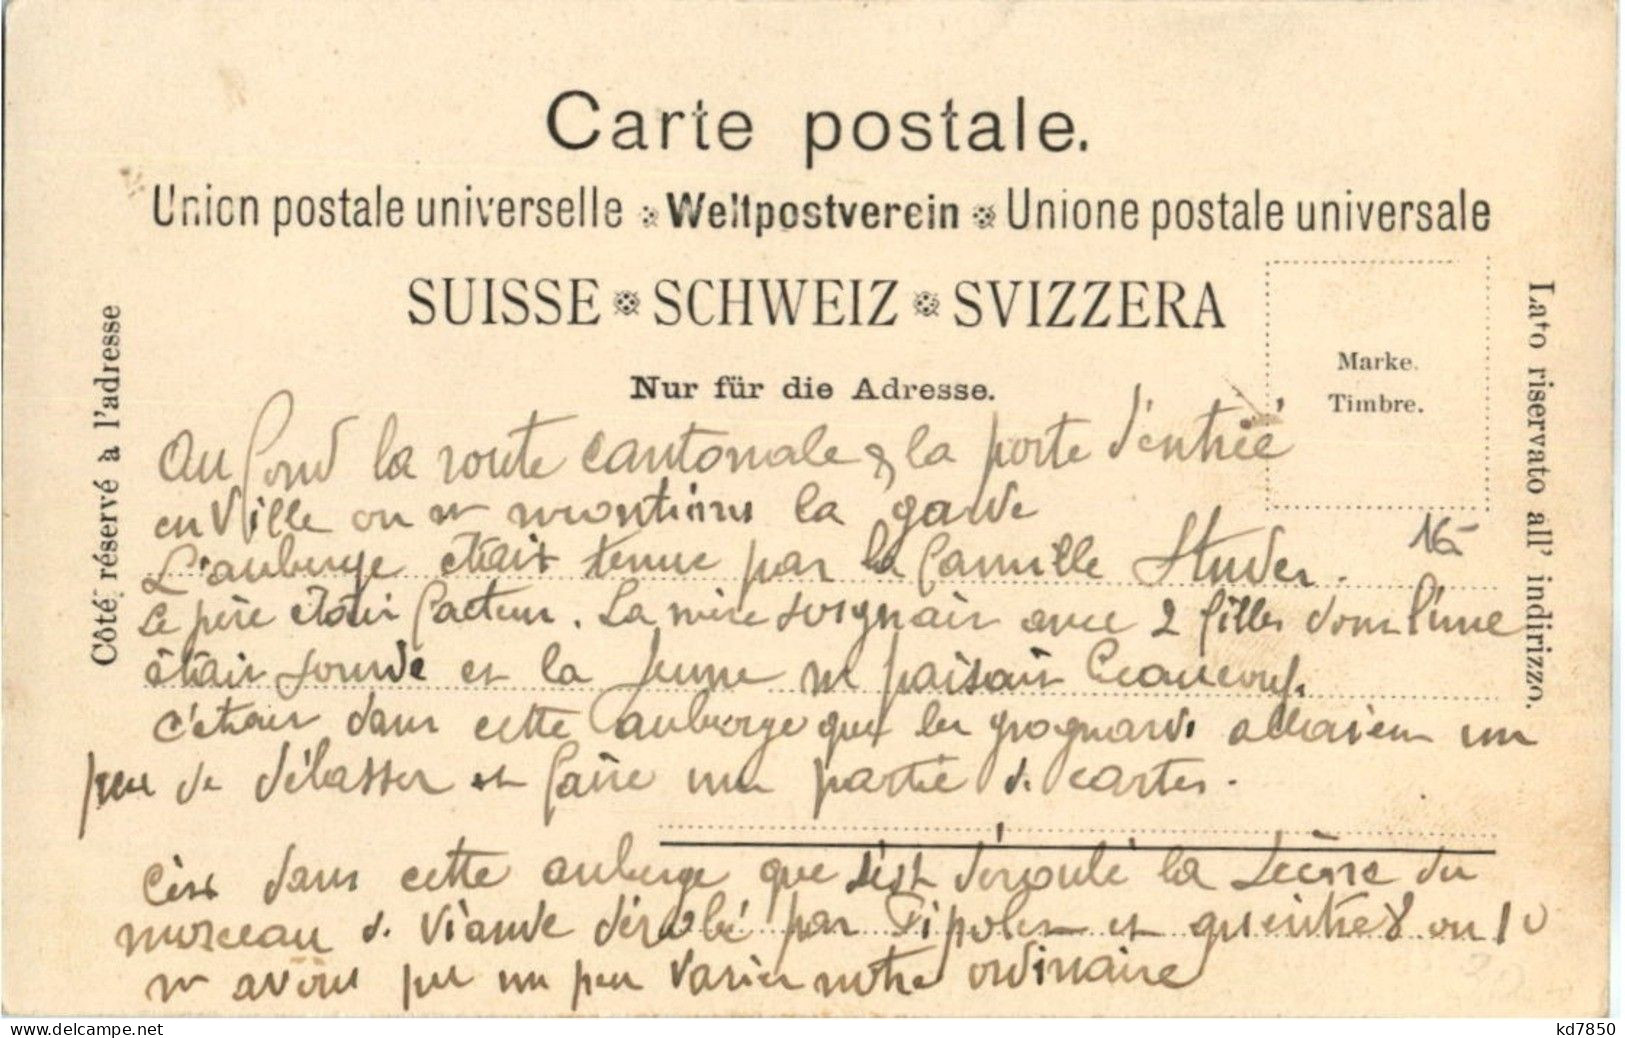 Carte postale.
Union postale universelle Weltpostverein Unione postale universale
SUISSE SCHWEIZ SVIZZERA
Nur für die Adresse.
Marke.
Timbre.
Côté réservé à l'adresse
Lato riservato all' indirizzo.
Au fond la route cantonale & la porte d'entrée
en Ville ou n montions la garde
16-
L'auberge était tenue par la famille Studer.
Le père était facteur. La mère soignait avec 2 filles dont l'une
était sourde et la jeune me faisait beaucoup.
c'etait dans cette auberge que les grognards allaient un
peu se délasser et faire une partie de cartes.
C'est dans cette auberge que s'est déroulé la scène du
morceau de viande dérobé par et ou
n avons pu un peu varier notre ordinaire
kd7850